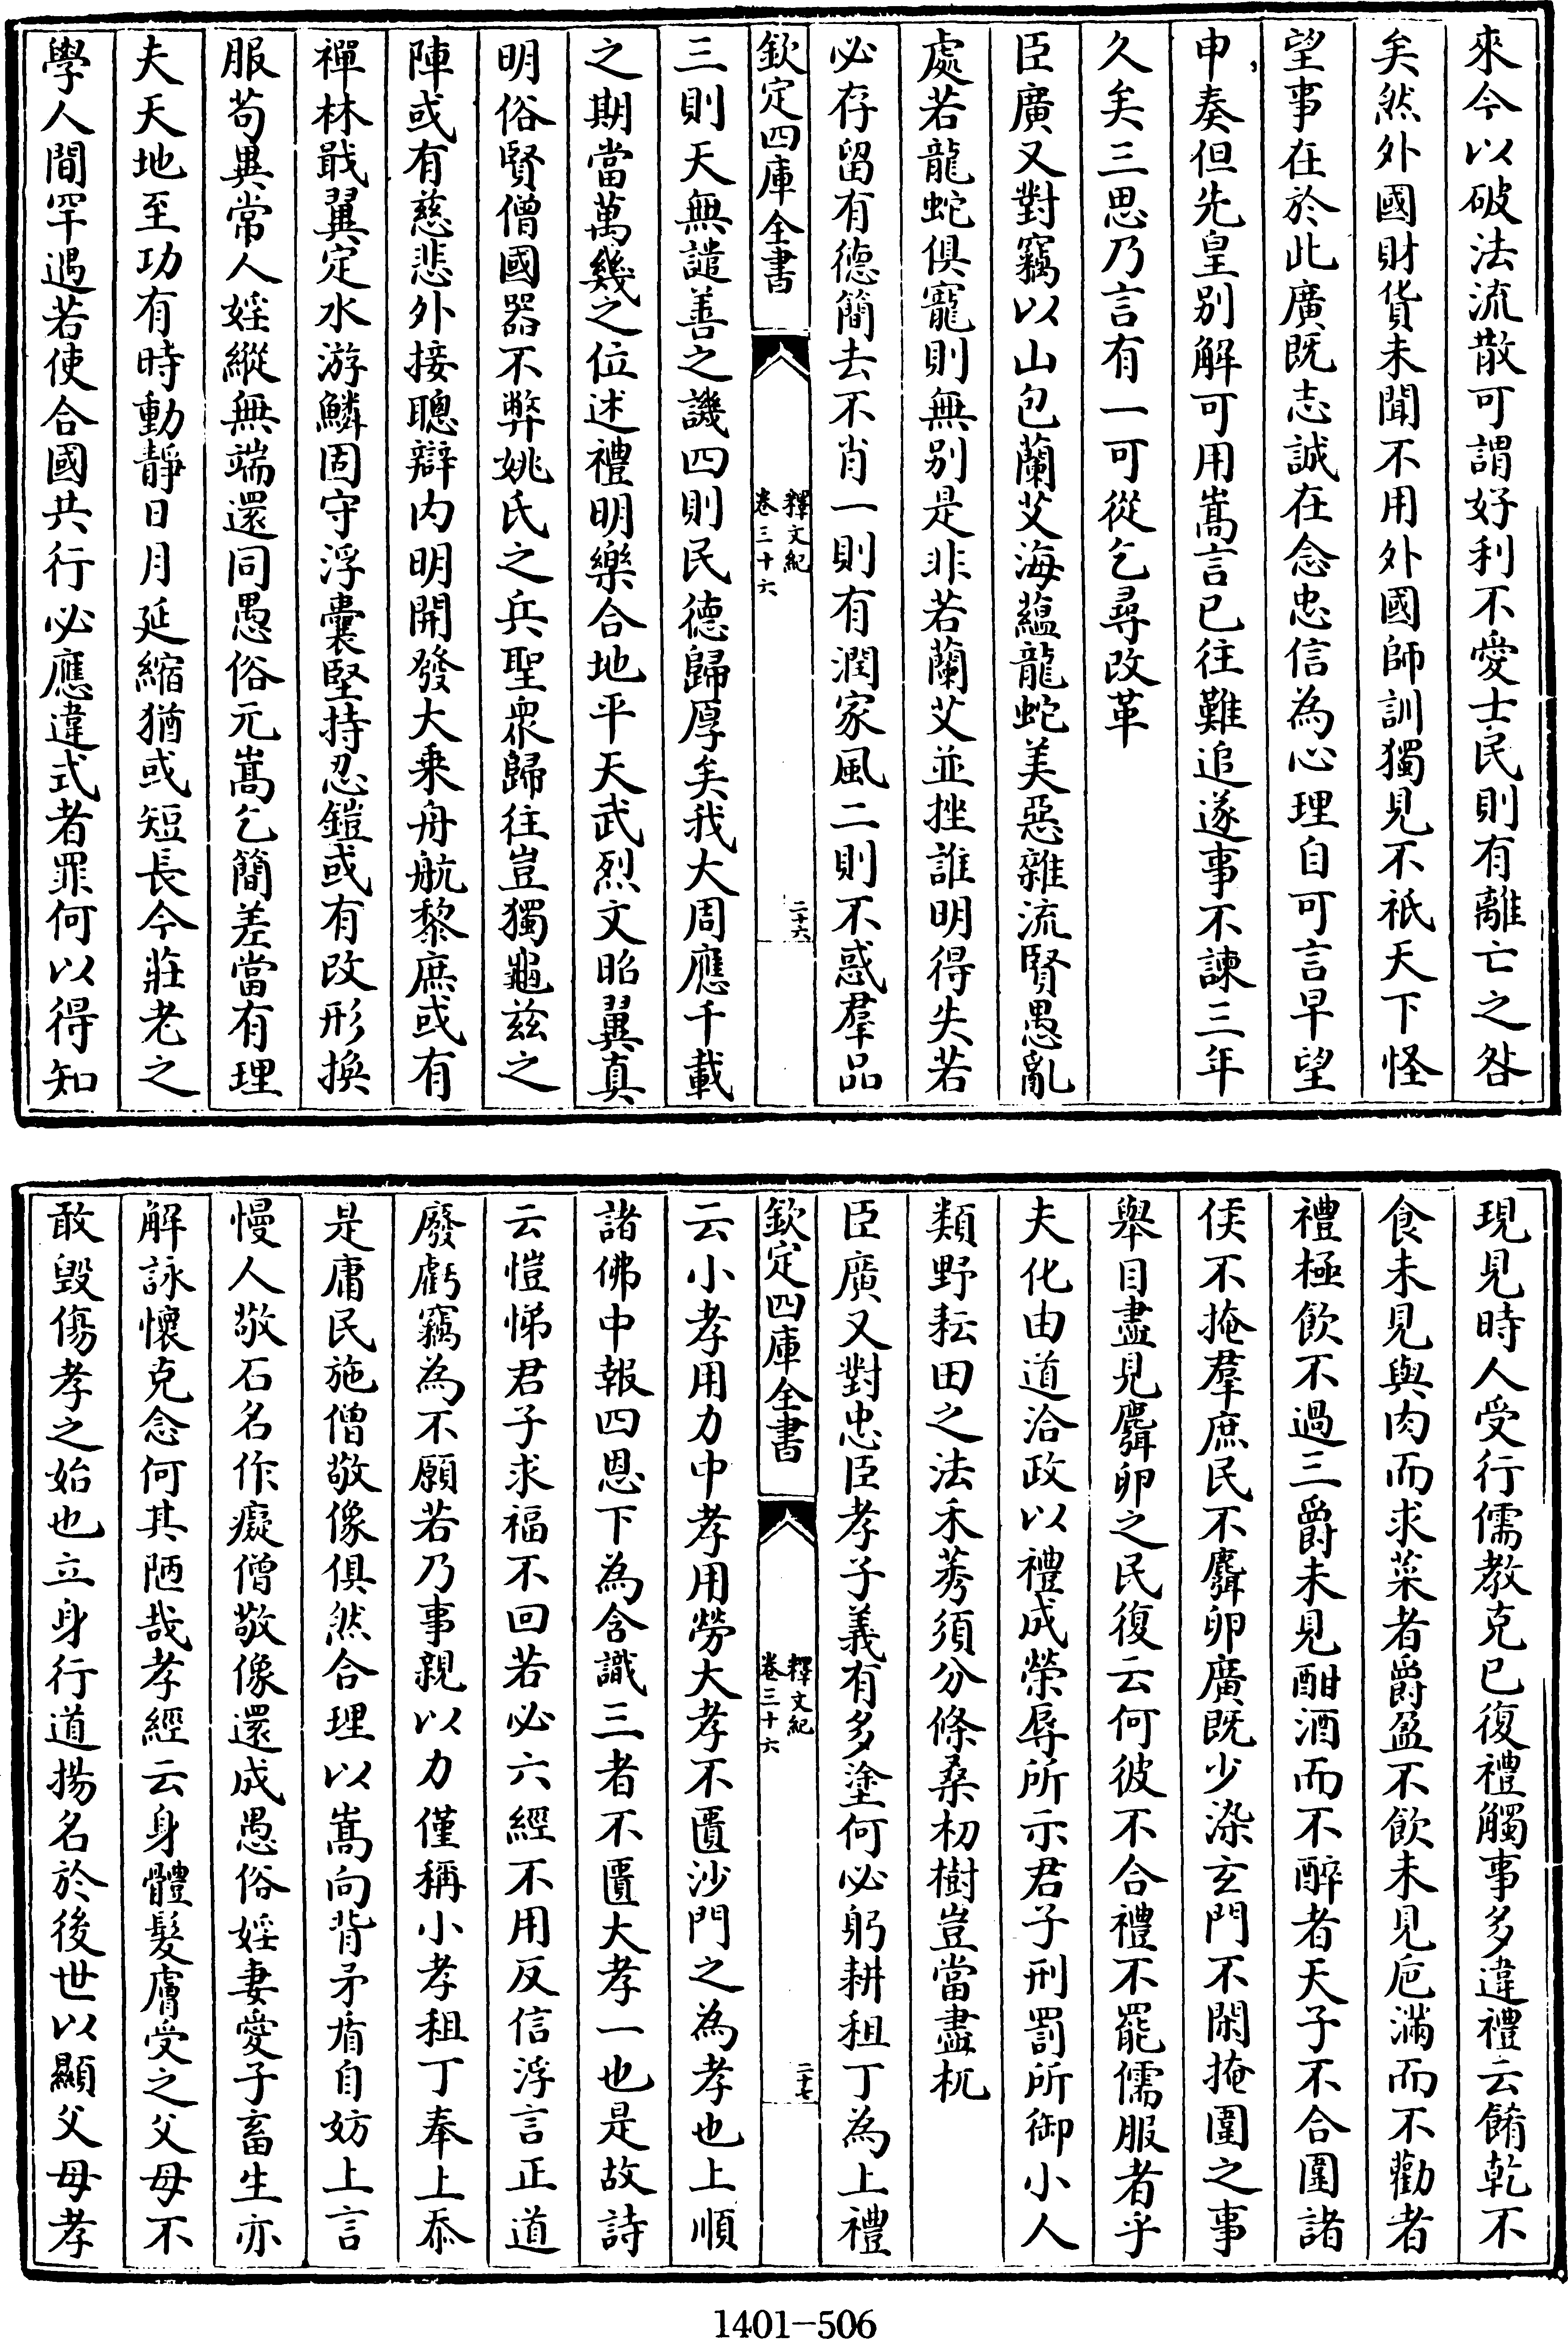 來今以破法流散可謂好利不愛士民則有離亡之咎
矣然外國財貨未聞不用外國師訓獨見不祇天下怪
望事在於此廣既志誠在念忠信為心理自可言早望
申奏但先皇別解可用嵩言已往難追遂事不諫三年
久矣三思乃言有一可從乞尋改革
臣廣又對竊以山包蘭艾海蘊龍蛇美惡雜流賢愚亂
處若龍蛇俱寵則無別是非若蘭艾並挫誰明得失若
必存留有德簡去不肖一則有潤家風二則不惑羣品
欽定四庫全書
釋文紀
卷三十六
二十六
三則天無譴善之譏四則民德歸厚矣我大周應千載
之期當萬幾之位述禮明樂合地平天武烈文昭翼真
明俗賢僧國器不弊姚氏之兵聖衆歸往豈獨龜茲之
陣或有慈悲外接聰辯内明開發大乗舟航黎庶或有
禪林戢翼定水游鱗固守浮囊堅持忍鎧或有改形換
服苟異常人婬縱無端還同愚俗元嵩乞簡差當有理
夫天地至功有時動靜日月延縮猶或短長今莊老之
學人間罕遇若使合國共行必應違式者罪何以得知
現見時人受行儒教克已復禮觸事多違禮云餚乾不
食未見與肉而求菜者爵盈不飲未見巵滿而不勸者
禮極飲不過三爵未見酣酒而不醉者天子不合圍諸
侯不掩羣庶民不麛卵廣既少染玄門不閑掩圍之事
舉目盡見麛卵之民復云何彼不合禮不罷儒服者乎
夫化由道洽政以禮成榮辱所示君子刑罰所御小人
類野耘田之法禾莠須分條桑杒樹豈當盡杌
臣廣又對忠臣孝子義有多塗何必躬耕租丁為上禮
欽定四庫全書
釋文紀
卷三十六
二十七
云小孝用力中孝用勞大孝不匱沙門之為孝也上順
諸佛中報四恩下為含識三者不匱大孝一也是故詩
云愷悌君子求福不回若必六經不用反信浮言正道
廢虧竊為不願若乃事親以力僅稱小孝租丁奉上忝
是庸民施僧敬像俱然合理以嵩向背矛盾自妨上言
慢人敬石名作癡僧敬像還成愚俗婬妻愛子畜生亦
解詠懷克念何其陋哉孝經云身體髮膚受之父母不
敢毀傷孝之始也立身行道揚名於後世以顯父母孝
1401-506